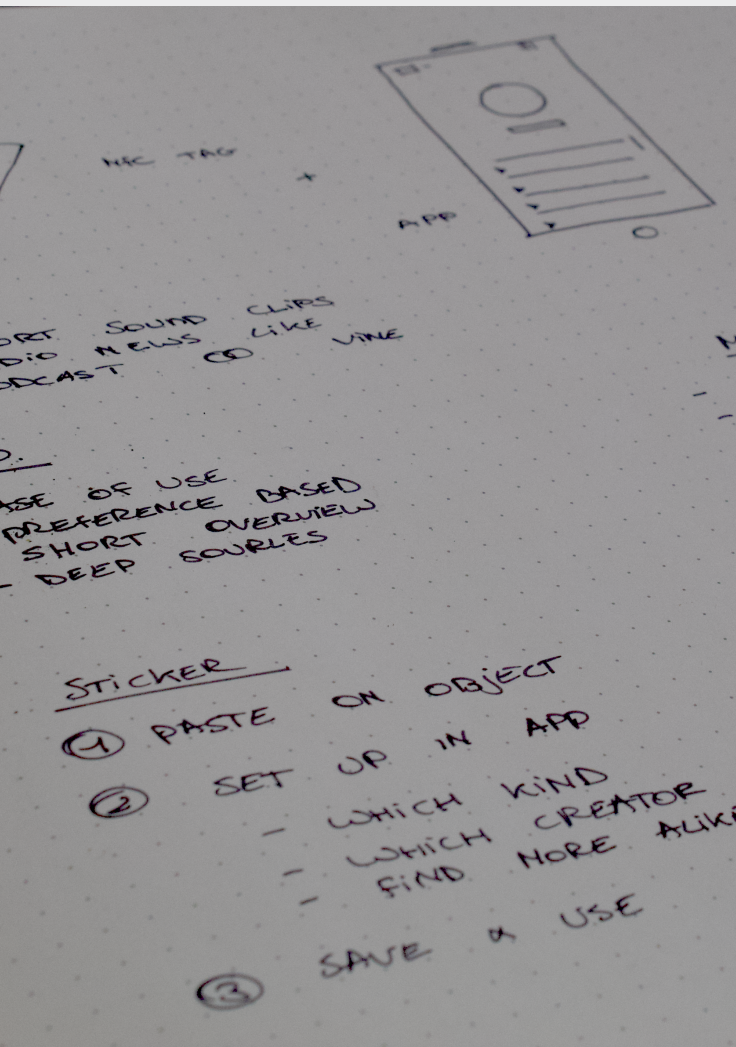 NFC TAG
+
APP
ORT SOUND CLIPS
DIO NEWS LIKE
ODCAST VINE
ASE OF USE
PREFERENCE BASED
SHORT OVERVIEW
- DEEP SOURLES
STICKER
1 PASTE ON OBJECT
2 SET UP IN APP
- WHICH KIND
- WHICH CREATOR
- FIND MORE ALIKE
3 SAVE & USE